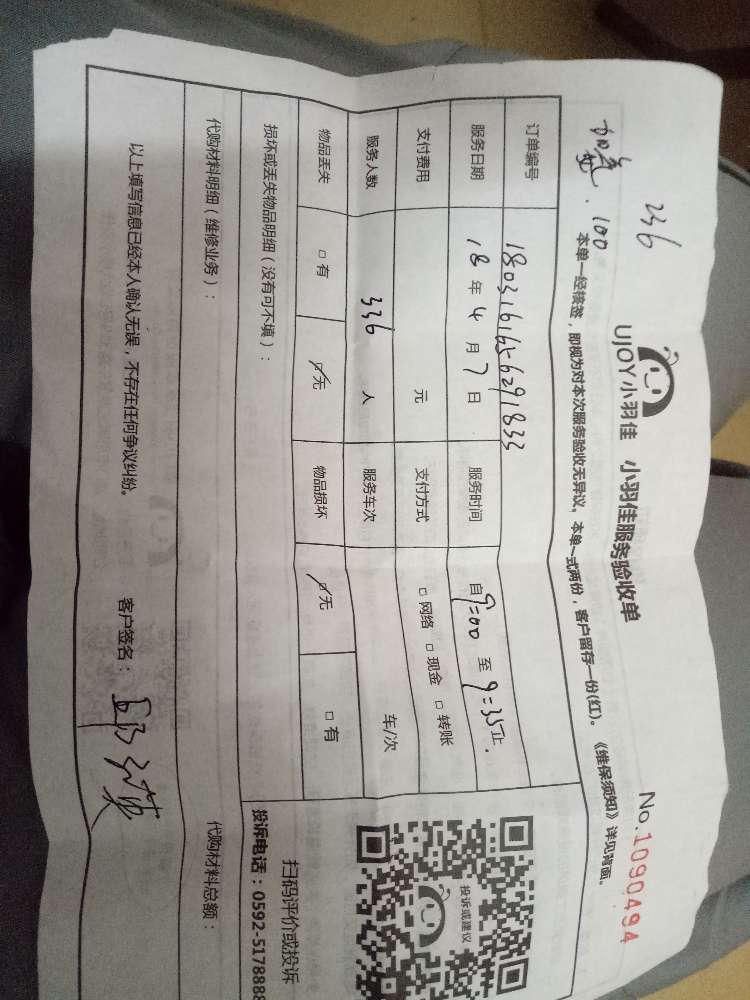 236
加急.100
UJOY小羽佳 小羽佳服务验收单
No.1090494
本单一经核签，即视为对本次服务验收无异议。本单一式两份，客户留存一份(红)。《维保须知》详见背面。
订单编号 18031616456291833
服务日期 18年4月7日 服务时间 自9:00至9:35止.
支付费用 元 支付方式 □网络 □现金 □转账
服务人数 336人 服务车次 车/次
物品丢失 □有 ☑无 物品损坏 ☑无 □有
损坏或丢失物品明细（没有可不填）：
投诉或建议
扫码评价或投诉
投诉电话：0592-5178888
代购材料明细（维修业务）： 代购材料总额：
以上填写信息已经本人确认无误，不存在任何争议纠纷。 客户签名：